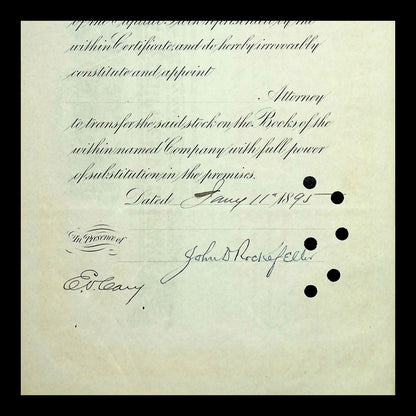 of the Capital Stock represented by the
within Certificate and do hereby irrevocably
constitute and appoint
Attorney
to transfer the said stock on the Books of the
within named Company with full power
of substitution in the premises.
Dated Jany 11th 1895
In Presence of
John D Rockefeller
E.V. Cary